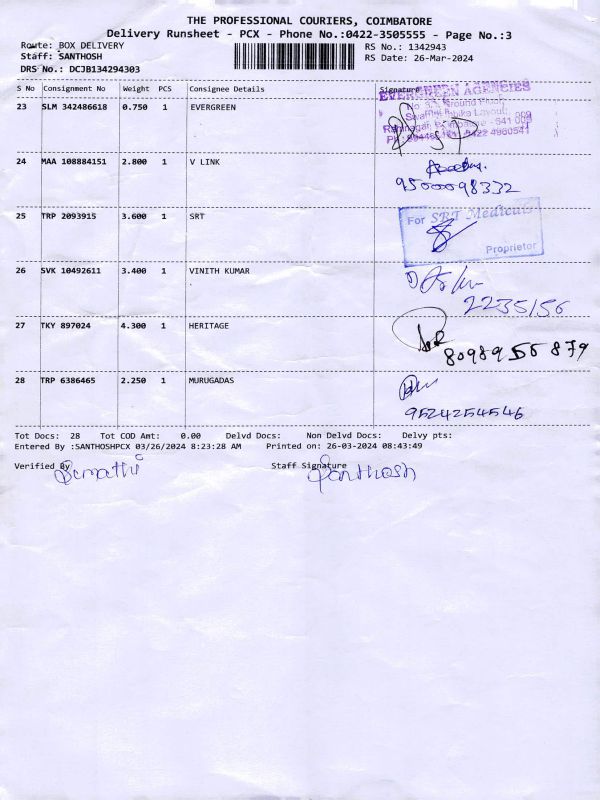 THE PROFESSIONAL COURIERS, COIMBATORE
Delivery Runsheet - PCX - Phone No.:0422-3505555 - Page No.:3
Route: BOX DELIVERY RS No.: 1342943
Staff: SANTHOSH RS Date: 26-Mar-2024
DRS No.: DCJB134294303
S No Consignment No Weight PCS Consignee Details Signature
23 SLM 342486618 0.750 1 EVERGREEN
EVERGREEN AGENCIES
Ground Floor,
Layout,
24 MAA 108884151 2.800 1 V LINK
9500098332
25 TRP 2093915 3.600 1 SRT
For SRT Medicals
Proprietor
26 SVK 10492611 3.400 1 VINITH KUMAR
2235156
27 TKY 897024 4.300 1 HERITAGE
8098955879
28 TRP 6386465 2.250 1 MURUGADAS
9524254546
Tot Docs: 28 Tot COD Amt: 0.00 Delvd Docs: Non Delvd Docs: Delvy pts:
Entered By :SANTHOSHPCX 03/26/2024 8:23:28 AM Printed on: 26-03-2024 08:43:49
Verified By Staff Signature
Santhosh